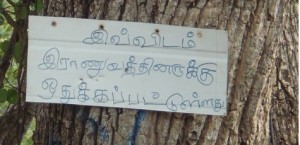 இவ்விடம்
இராணுவத்தினருக்கு
ஒதுக்கப்பட்டுள்ளது